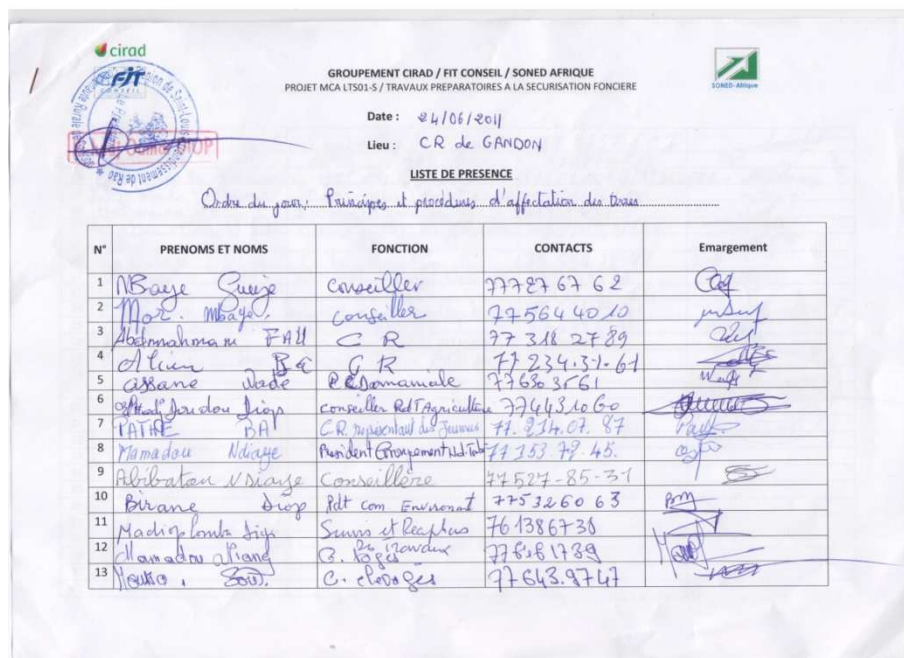 cirad
FIT
CONSEIL
SONED-Afrique
GROUPEMENT CIRAD / FIT CONSEIL / SONED AFRIQUE
PROJET MCA LTS01-S / TRAVAUX PREPARATOIRES A LA SECURISATION FONCIERE
Date : 24/06/2011
Lieu : CR de GANDON
LISTE DE PRESENCE
Ordre du jour: Principes et procédures d'affectation des terres
N° PRENOMS ET NOMS FONCTION CONTACTS Emargement
1 NBaye Gueye Conseiller 777276762
2 Mor. Mbaye. conseiller 775644010
3 Abdourahmane FALL C R 77 318 27 89
4 Alioun Ba C R 77 234.31.61
5 assane Wade Domaniale 776303561
6 Diop conseiller PdtAgriculture 774431060
7 PATHE BA C.R. représentant des Jeunes 77.214.07.87
8 Mamadou Ndiaye President Groupement 77 153.79.45.
9 Abibatou Ndiaye Conseillère 77527-85-31
10 Birane Diop Pdt com Environnt 7753260 63
11 Diop 761386738
12 Mamadou Niang C. Des travaux
13 Sow. C. 77643.9747